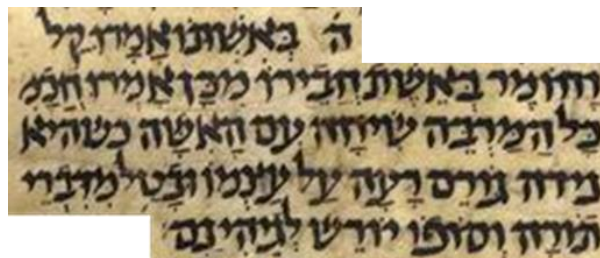 ה באשתו אמרו קל
וחומר באשת חבירו מכן אמרו חכמ
כל המרבה שיחה עם האשה כשהיא
נידה גורם רעה על עצמו ובטל מדברי
תורה וסופו יורש לגיהינם